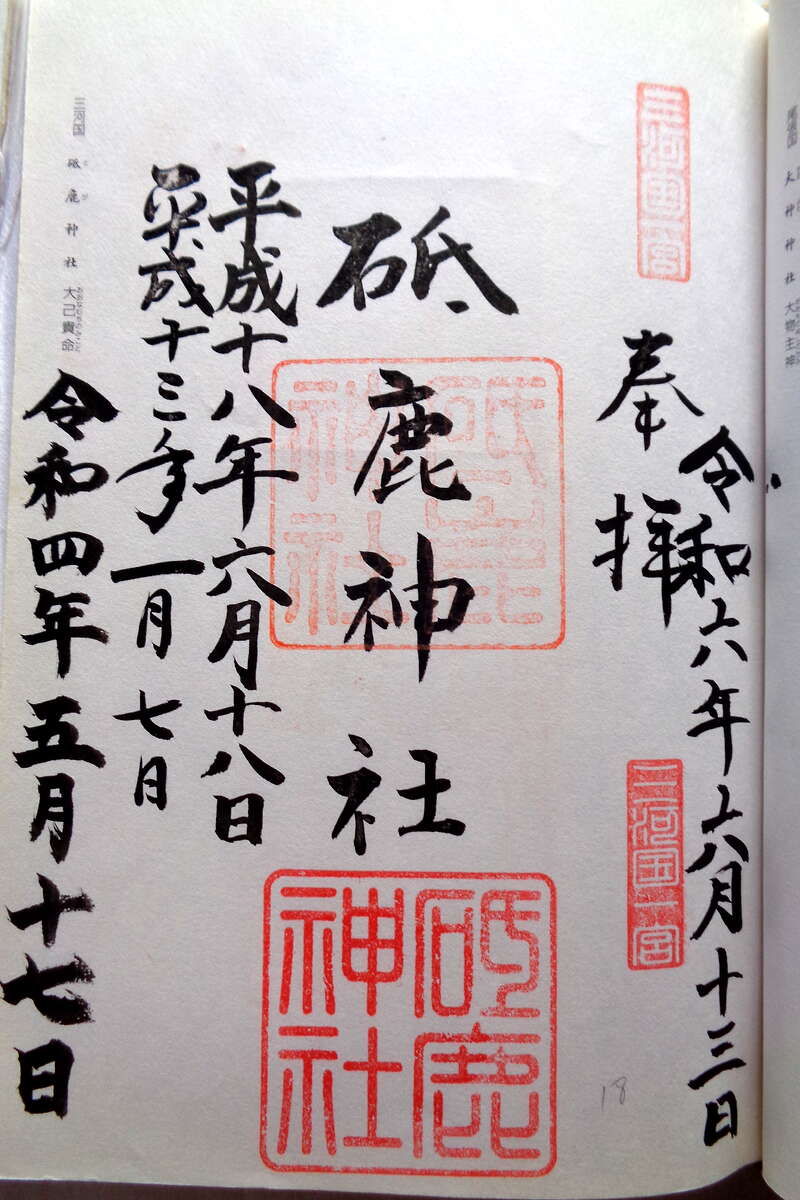 尾張国 大神神社 大物主神
令和六年六月十三日
三河国一宮
奉拝
三河国一宮
砥鹿神社
砥鹿神社
砥鹿神社
平成十八年六月十八日
平成十三年一月七日
三河国 砥鹿神社 大己貴命
令和四年五月十七日
18